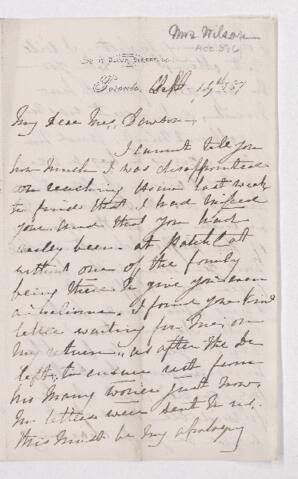 Mrs Wilson
Toronto, Sept 19th 187
My Dear Mrs Dawson
I cannot tell you
how much I was disappointed
on reaching home last week
to find that I had missed
you, and that you had
really been at
without one of the family
being there to give you even
a welcome. I found your kind
letter waiting for me on
my return, as after the Dr
left, to ensure rest from
his many worries just now
no letters were sent to us.
this must be my apology